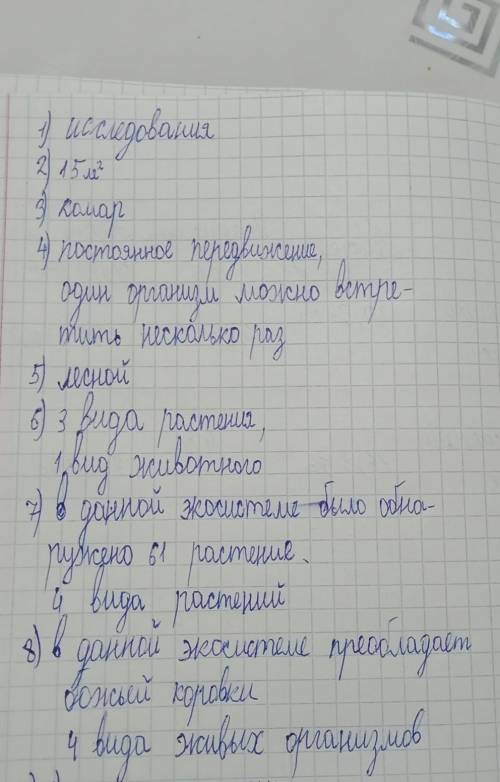 1) исследования
2) 15 м²
3) комар
4) постоянное передвижение,
один организм можно встре-
тить несколько раз
5) лесной
6) 3 вида растения,
1 вид животного
7) в данной экосистеме было обна-
ружено 61 растение.
4 вида растений
8) в данной экосистеме преобладает
божьей коровки
4 вида живых организмов